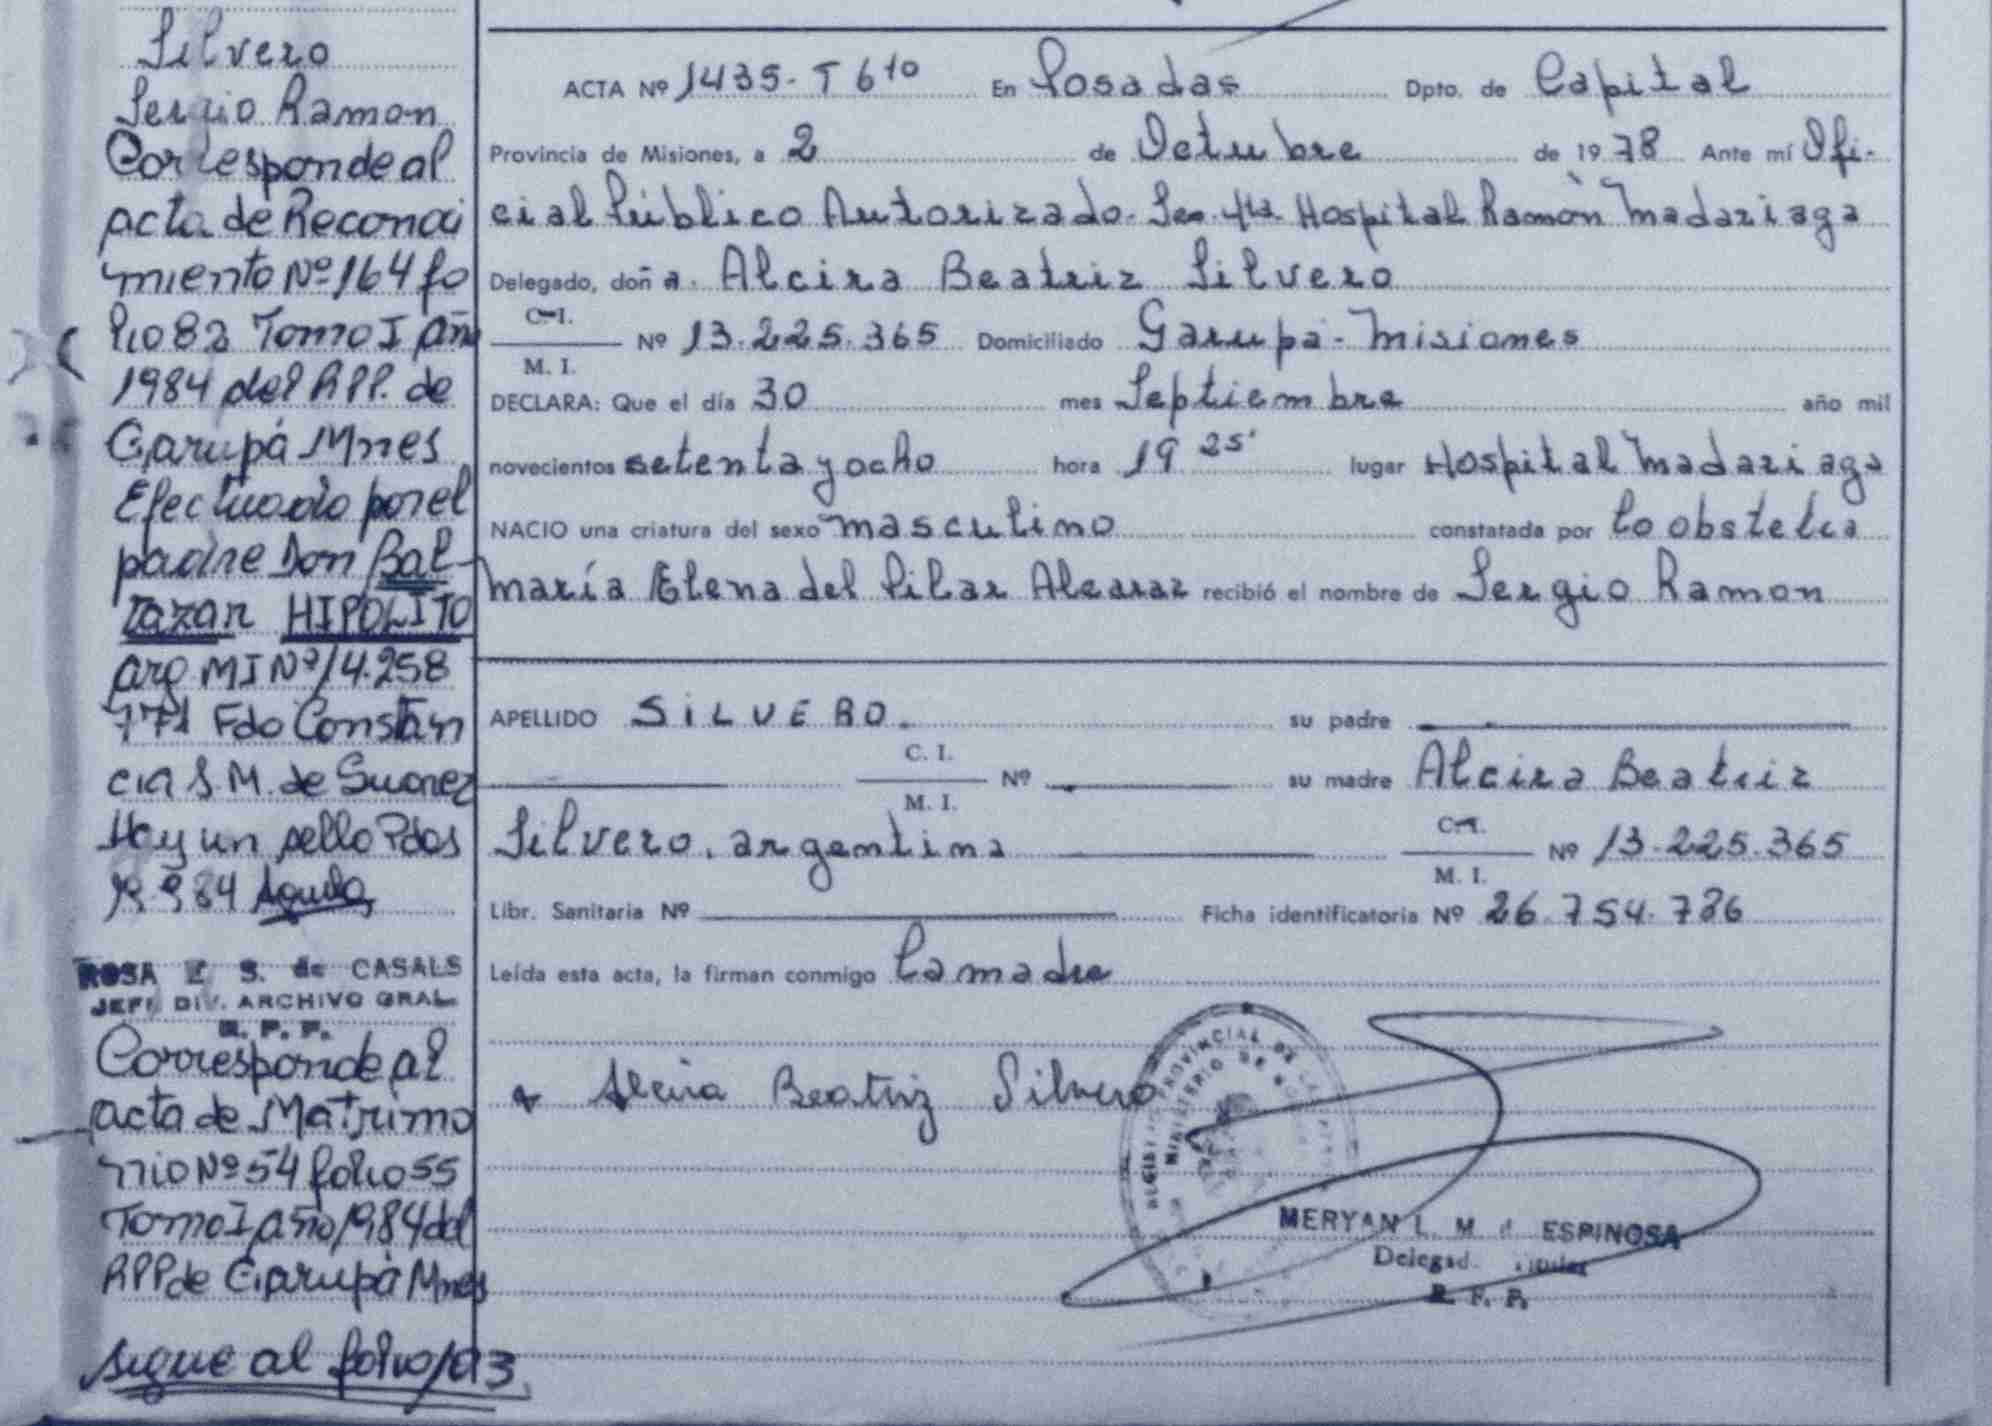 Silvero
Sergio Ramon
Corresponde al
acta de Reconoci
miento Nº 164 fo
lio 82 Tomo I año
1984 del RPP. de
Garupá Mnes
Efectuado por el
padre Don Bal
tazar HIPOLITO
arg MI Nº 14.258
771 Fdo Constan
cia S.M. de Suarez
Hay un sello Pdas
84
ROSA E S. de CASALS
JEFE DIV. ARCHIVO GRAL.
R. P. P.
Corresponde al
acta de Matrimo
nio Nº 54 folio 55
Tomo I año 1984 del
RPP de Garupá Mnes
sigue al folio 193
ACTA Nº 1435-T 6to En Posadas Dpto. de Capital
Provincia de Misiones, a 2 de Octubre de 1978 Ante mí Ofi-
cial Público Autorizado. Sec. 4ta. Hospital Ramón Madariaga
Delegado, doña. Alcira Beatriz Silvero
C. I.
M. I. Nº 13.225.365 Domiciliado Garupá-Misiones
DECLARA: Que el día 30 mes Septiembre año mil
novecientos setenta y ocho hora 19 25' lugar Hospital Madariaga
NACIO una criatura del sexo masculino constatada por la obstetra
María Elena del Pilar Alcaraz recibió el nombre de Sergio Ramon
APELLIDO SILVERO. su padre
C. I.
M. I. Nº su madre Alcira Beatriz
Silvero. argentina C. I.
M. I. Nº 13.225.365
Libr. Sanitaria Nº Ficha identificatoria Nº 26.754.786
Leída esta acta, la firman conmigo la madre
Alcira Beatriz Silvero
PROVINCIAL DE LAS
MINISTERIO DE
MERYAN L. M. d ESPINOSA
Delegad. Titular
R. P. P.